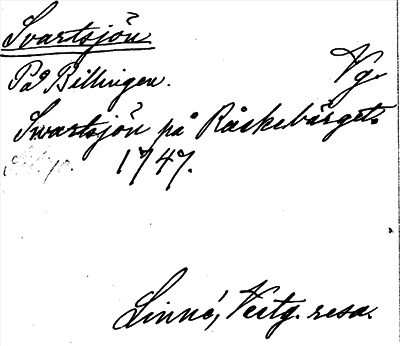 Svartsjön
Vg.
På Billingen.
Swartsjön på Råskebärget.
1747.
Linné, Vestg. resa.